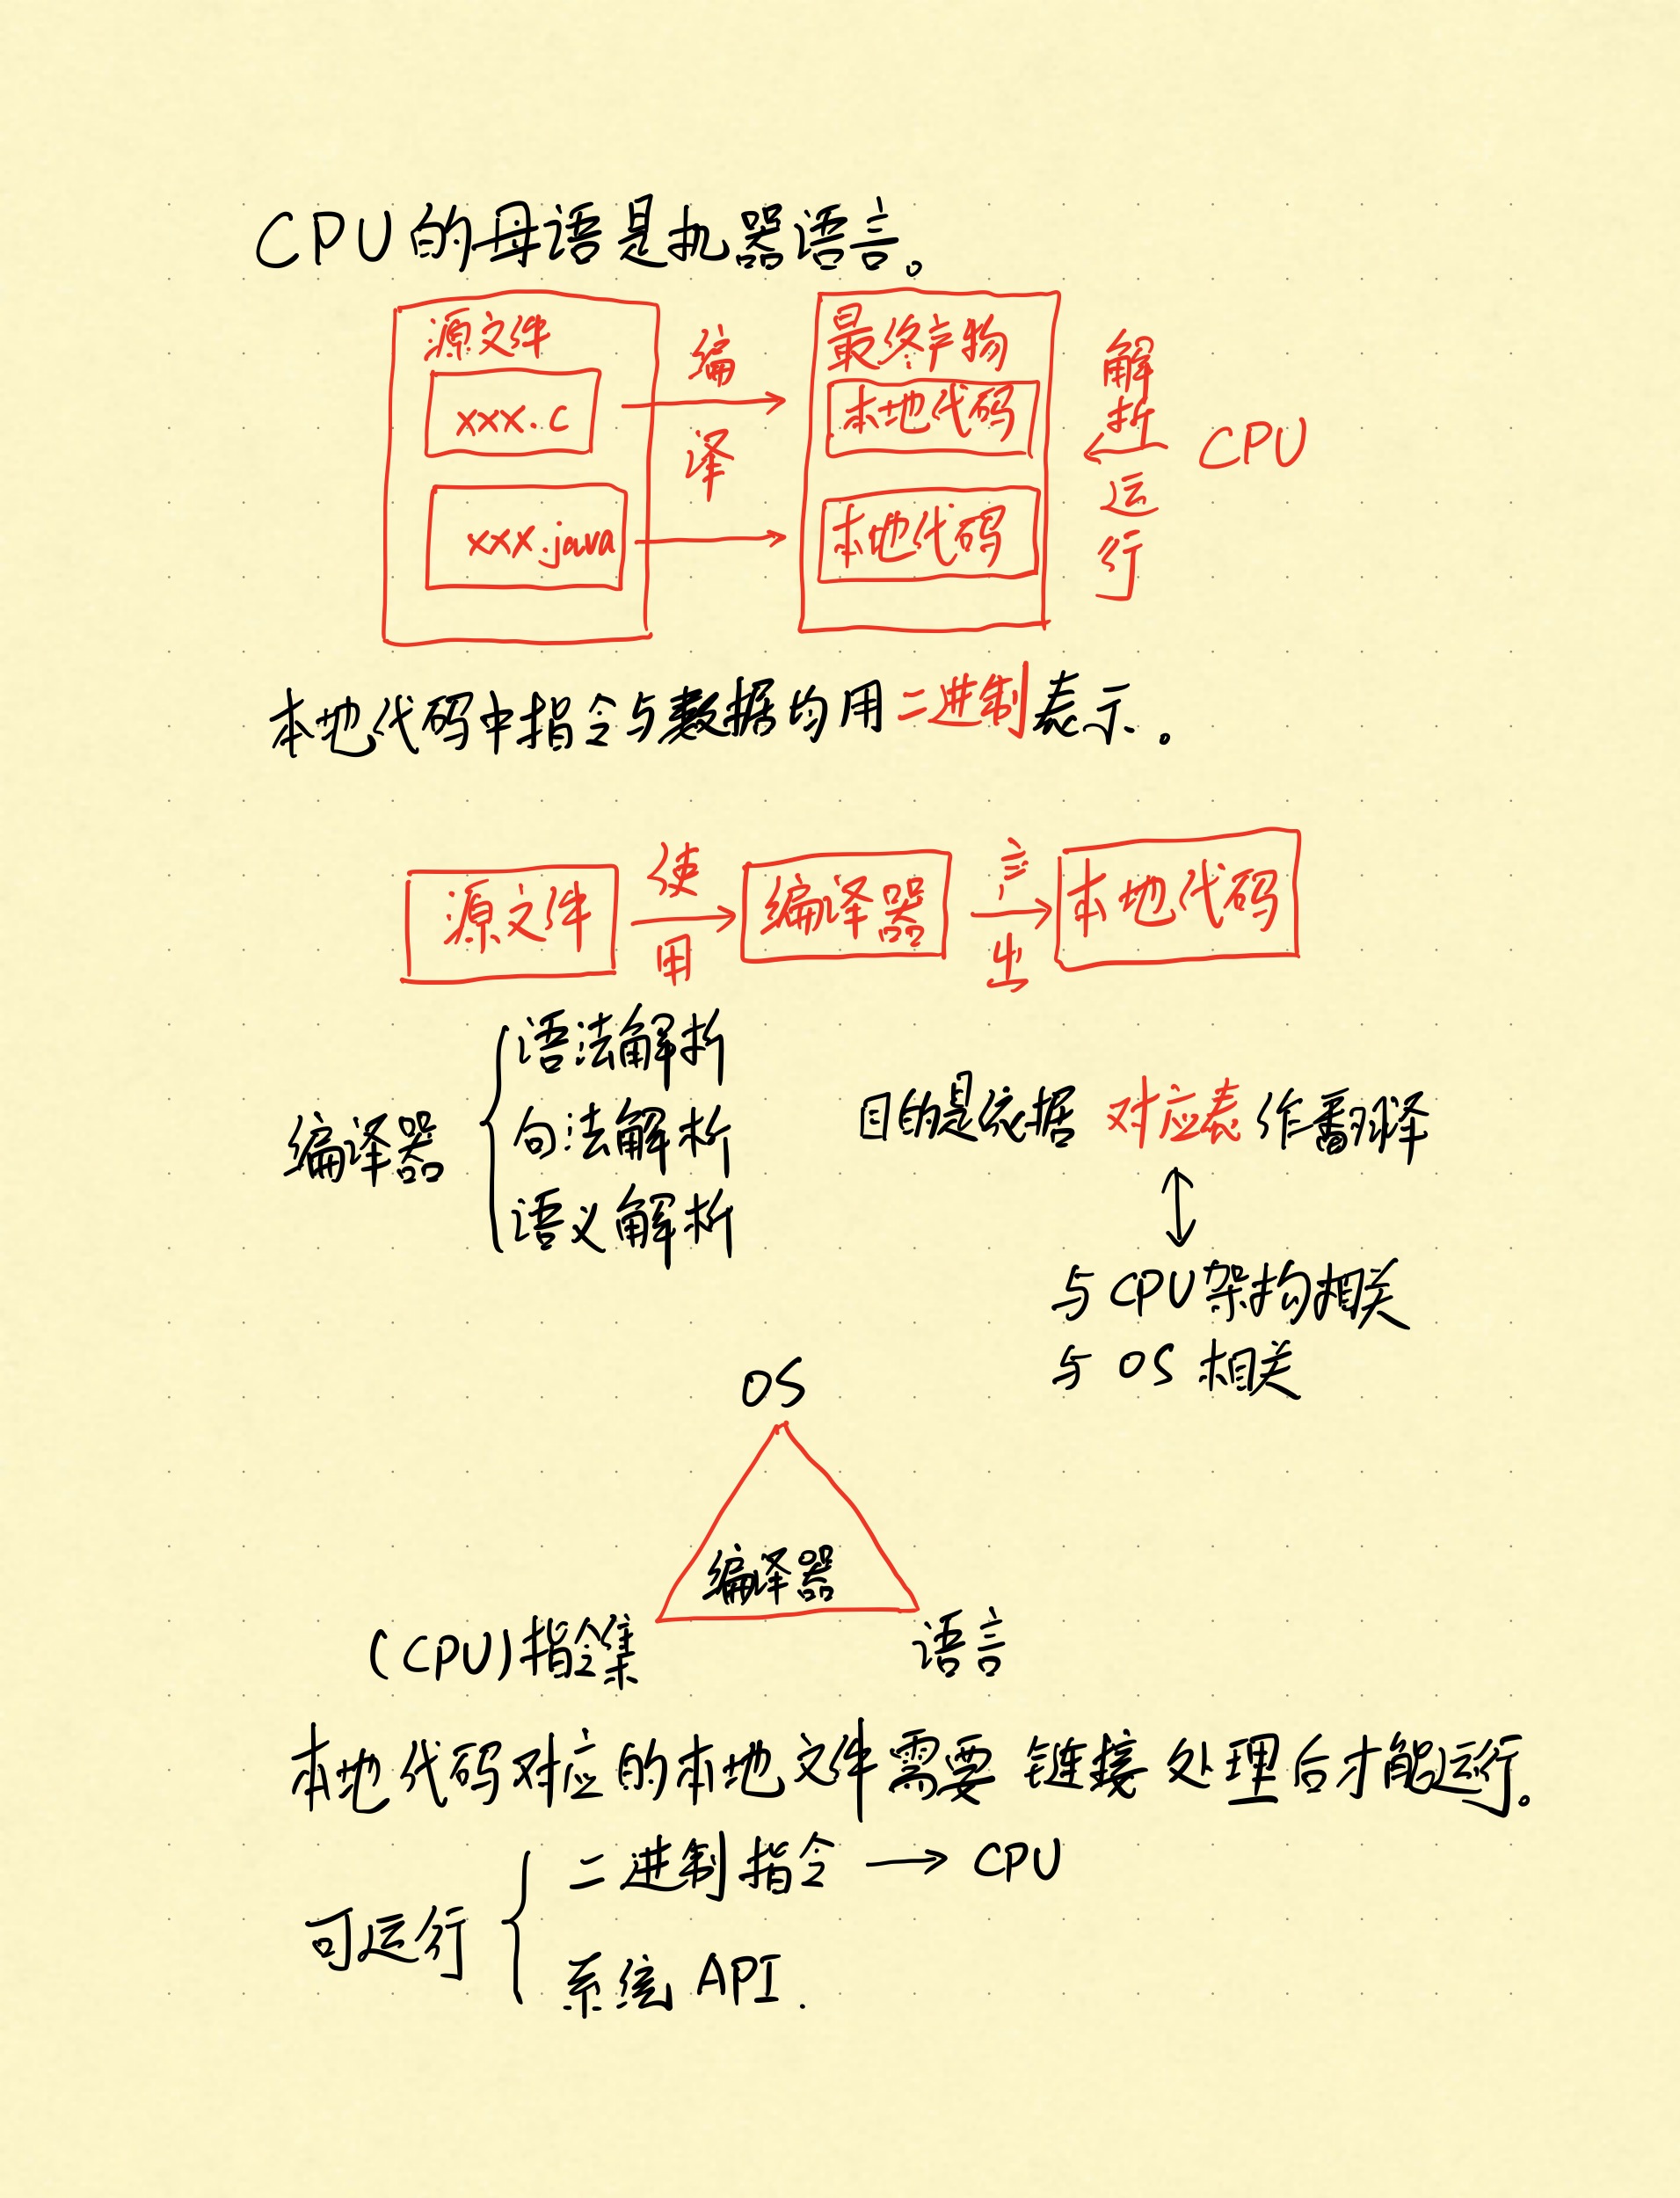 CPU的母语是机器语言。
源文件
编译
最终产物
解析运行
xxx.c
本地代码
CPU
xxx.java
本地代码
本地代码中指令与数据均用二进制表示.
源文件
使用
编译器
产出
本地代码
编译器
语法解析
句法解析
语义解析
目的是依据 对应表 作翻译
与CPU架构相关
与 OS 相关
OS
编译器
(CPU)指令集
语言
本地代码对应的本地文件需要 链接 处理后才能运行.
可运行
二进制指令 → CPU
系统 API.